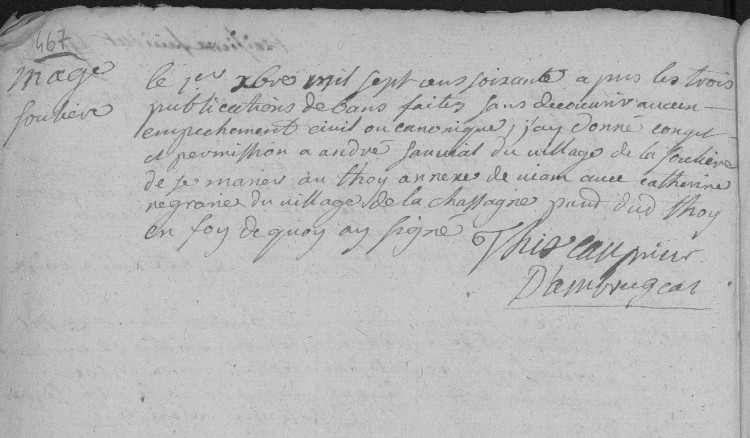 467
mage
souliere
le 1er xbre mil sept cens soixante apres les trois
publications de bans faites sans decouvrir aucun
empechement civil ou canonique, j'ay donné congé
et permission a andré sauviat du village de la souliere
de se marier au thoy annexe de viam avec catherine
negrerie du village de la chassagne dud thoy
en foy de quoy ay signé
prieur
D'ambrugeat